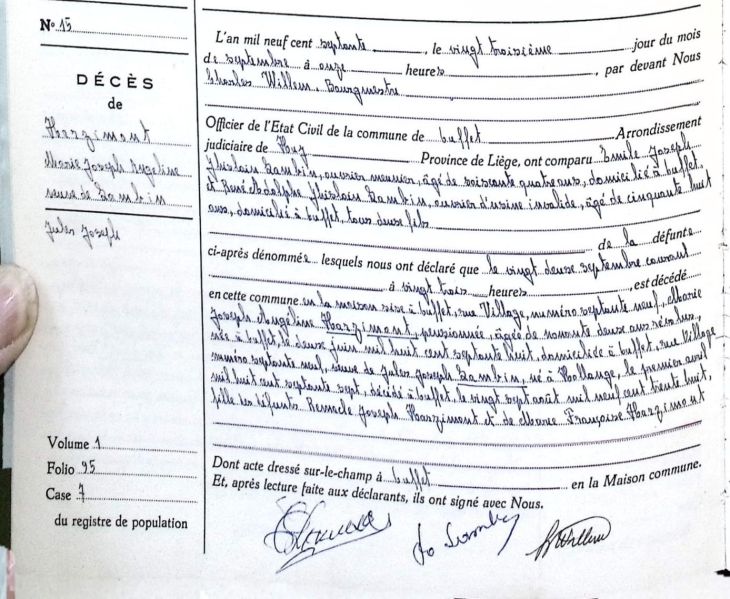 N° 15
DÉCÈS
de
Harzimont
Marie Joseph Angéline
veuve de Lambin
Jules Joseph
Volume 1
Folio 95
Case 7
du registre de population
L'an mil neuf cent septante, le vingt troisième jour du mois
de septembre à onze heures, par devant Nous
Charles Willem, Bourgmestre
Officier de l'Etat Civil de la commune de Ouffet Arrondissement
judiciaire de Huy Province de Liège, ont comparu Emile Joseph
Ghislain Lambin, ouvrier meunier, âgé de soixante quatre ans, domicilié à Ouffet,
et René Adolphe Ghislain Lambin, ouvrier d'usine invalide, âgé de cinquante huit
ans, domicilié à Ouffet, tous deux fils
de la défunte
ci-après dénommée lesquels nous ont déclaré que le vingt deux septembre courant
à vingt trois heures, est décédé
en cette commune en la maison sise à Ouffet, rue Village, numéro septante neuf, Marie
Joseph Angéline Harzimont, pensionnée, âgée de nonante deux ans révolus,
née à Ouffet, le deux juin mil huit cent septante huit, domiciliée à Ouffet, rue Village
numéro septante neuf, veuve de Jules Joseph Lambin, né à Hollange, le premier août
mil huit cent septante sept, décédé à Ouffet, le vingt sept août mil neuf cent trente huit,
fille des défunts Remacle Joseph Harzimont et de Marie Françoise Harzimont
Dont acte dressé sur-le-champ à Ouffet en la Maison commune.
Et, après lecture faite aux déclarants, ils ont signé avec Nous.